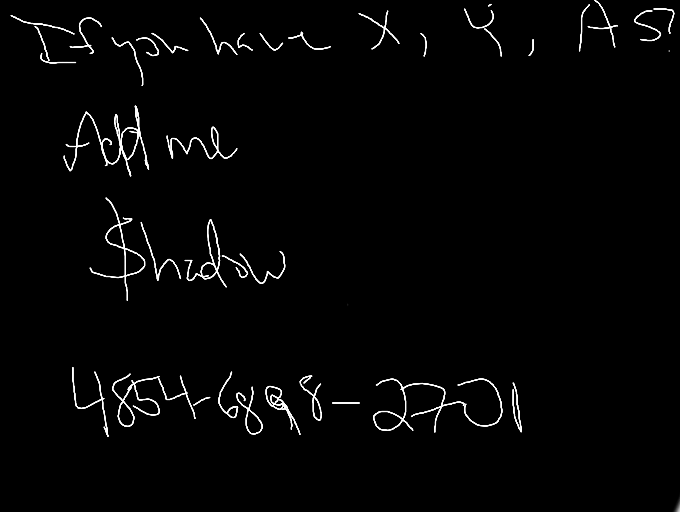 If you have X, Y, AS?
Add me
$hadow
4854-6898-2701